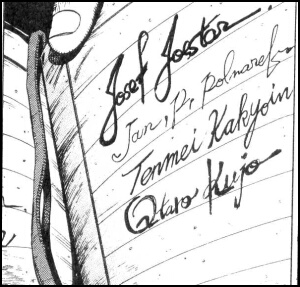 Josef Jostar
Jan. P. Polnaref
Tenmei Kakyoin
Qtaro Kujo